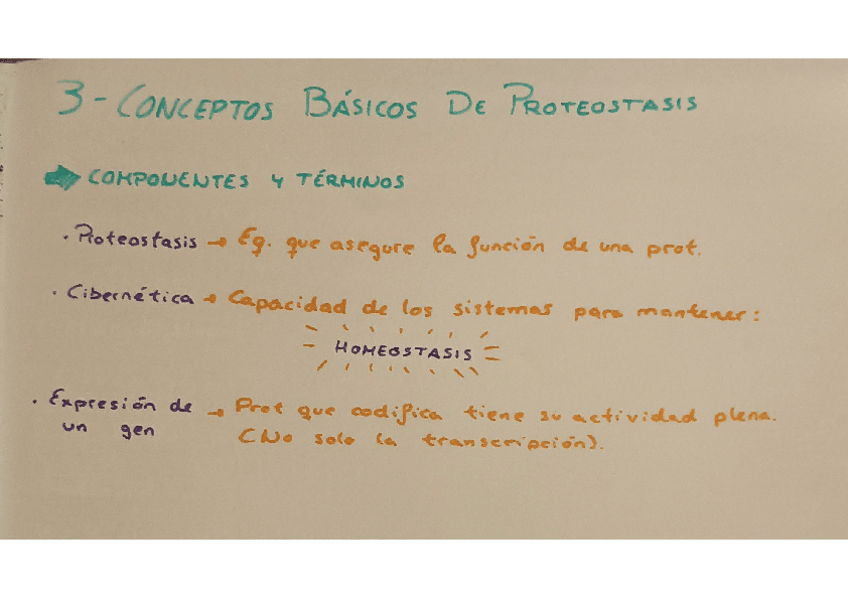 3 - CONCEPTOS BÁSICOS DE PROTEOSTASIS
COMPONENTES Y TÉRMINOS
· Proteostasis → Eq. que asegure la función de una prot.
· Cibernética → Capacidad de los sistemas para mantener:
HOMEOSTASIS
· Expresión de → Prot que codifica tiene su actividad plena.
un gen (No solo la transcripción).